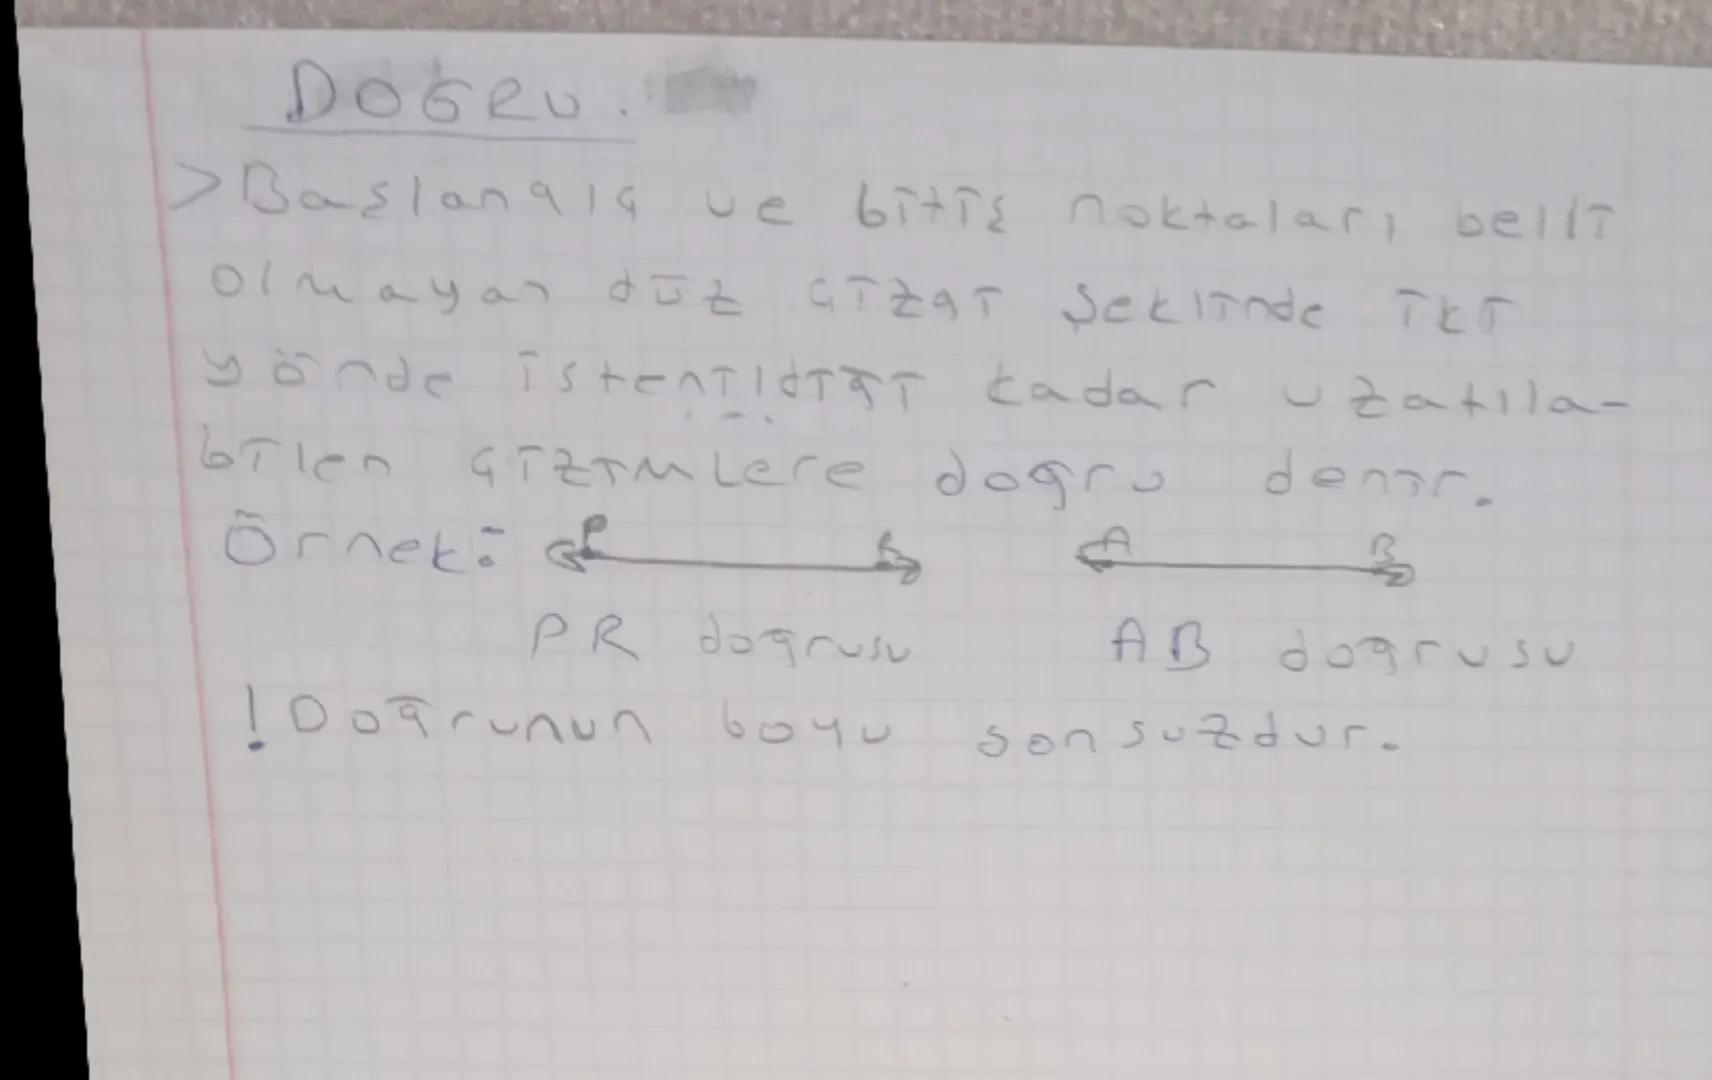 DOĞRU.
> Başlangıç ve bitiş noktaları belli
olmayan düz çizgi şeklinde iki
yönde istenildiği kadar uzatıla-
bilen çizimlere doğru denir.
Örnek: P R A B
PR doğrusu AB doğrusu
! Doğrunun boyu sonsuzdur.